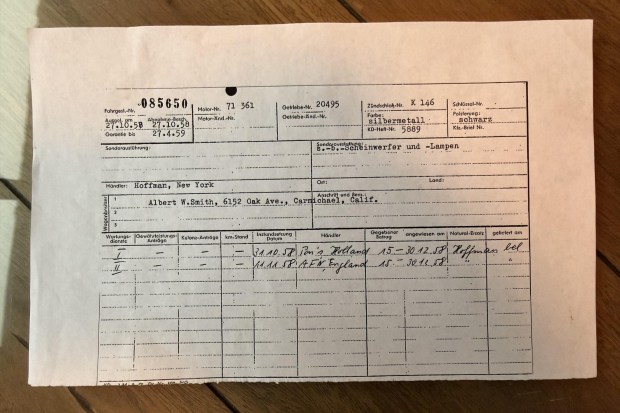 Fahrgest.-Nr. 085650 Motor-Nr. 71 361 Getriebe-Nr. 20495 Zündschloß-Nr. K 146 Schlüssel-Nr.
Ausgel. am Abnahme-Besch. Motor-Änd.-Nr. Getriebe-Änd.-Nr. Farbe: Polsterung:
27.10.58 27.10.58 silbermetall schwarz
Garantie bis 27.4.59 KD-Heft-Nr. 5889 Kfz.-Brief Nr.
Sonderausführung: Sonderausstattung:
-Scheinwerfer und -Lampen
Händler: Hoffman, New York Ort: Land:
Wagenbesitzer 1 Anschrift und Bem.:
Albert W.Smith, 6152 Oak Ave., Carmichael, Calif.
2
3
Wartungs- Gewährleistungs- Kulanz-Anträge km-Stand Instandsetzung Händler Gegebener angewiesen am Natural-Ersatz geliefert am
dienste Anträge Datum Betrag
I — — — 31.10.58 Pon's Holland 15 — 30.12.58 Hoffman bel
II — — — 11.11.58 A.F.N., England 15 — 30.12.58 " "